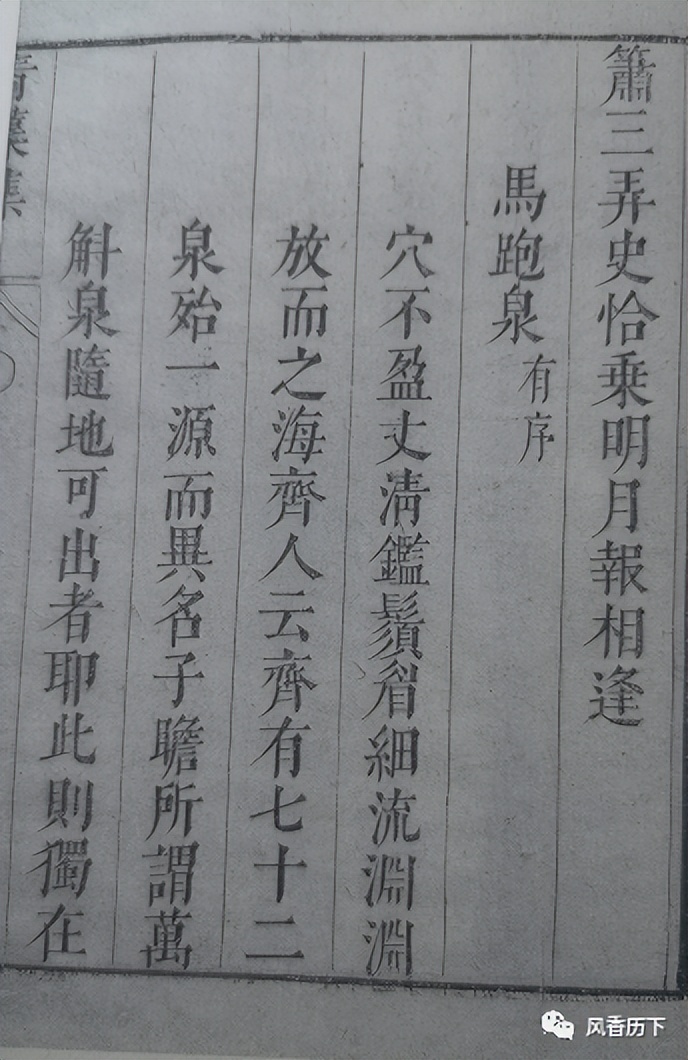 簫三弄史恰乗明月報相逢
馬跑泉有序
穴不盈丈淸鑑鬚眉細流淵淵
放而之海齊人云齊有七十二
泉殆一源而異名子瞻所謂萬
斛泉隨地可出者耶此則獨在
集
风香历下